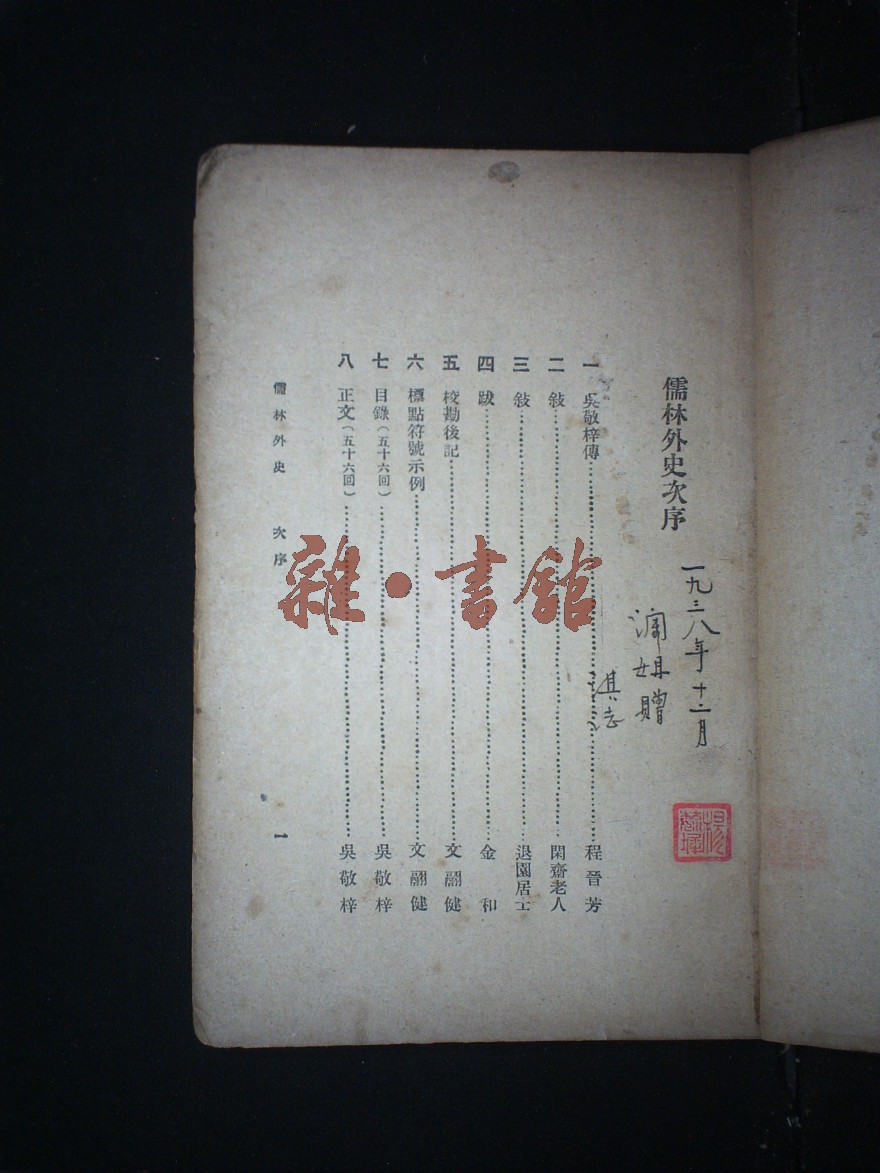 儒林外史次序
一九三八年十二月
姐贈
淇志
一 吳敬梓傳……程晉芳
二 敍……閑齋老人
三 敍……退園居士
四 跋……金和
五 校勘後記……文翮健
六 標點符號示例……文翮健
七 目錄(五十六回)……吳敬梓
八 正文(五十六回)……吳敬梓
儒林外史 次序 1
雜·書館